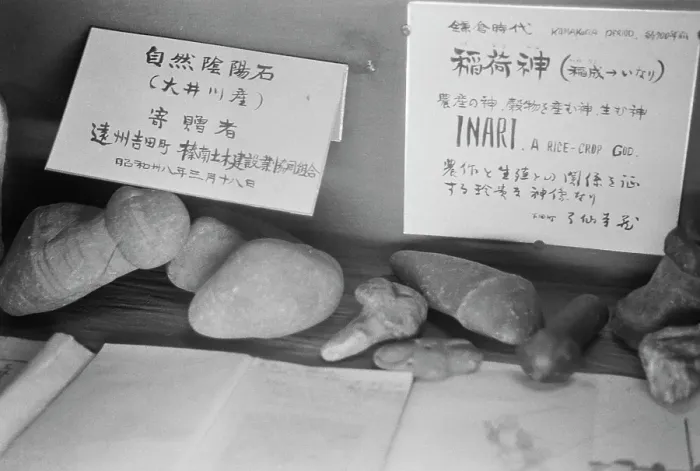 自然陰陽石
(大井川産)
寄贈者
遠州吉田町 榛南土木建設業協同組合
昭和卅八年三月十八日
鎌倉時代 KAMAKURA PERIOD.
稲荷神 (稲成→いなり)
農産の神、穀物を産む神、生む神
INARI. A RICE-CROP GOD.
農作と生殖との関係を証
する珍貴な神像なり